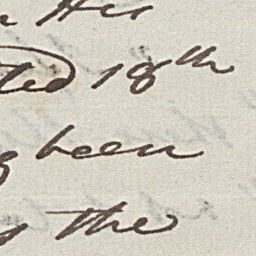 His
ted 18th
been
the